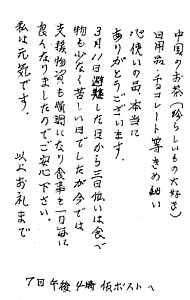 中国のお茶(珍らしいもの大好き)
日用品・チョコレート等きめ細い
心使いの品、本当に
ありがとうございます。
3月11日避難した日から三日位いは食べ
物も少なく苦しい日でしたが今では
支援物資も順調になり食事を一日毎に
良くなりましたのでご安心下さい。
私は元気です。 以上お礼まで
7日午後4時 仮ポストへ